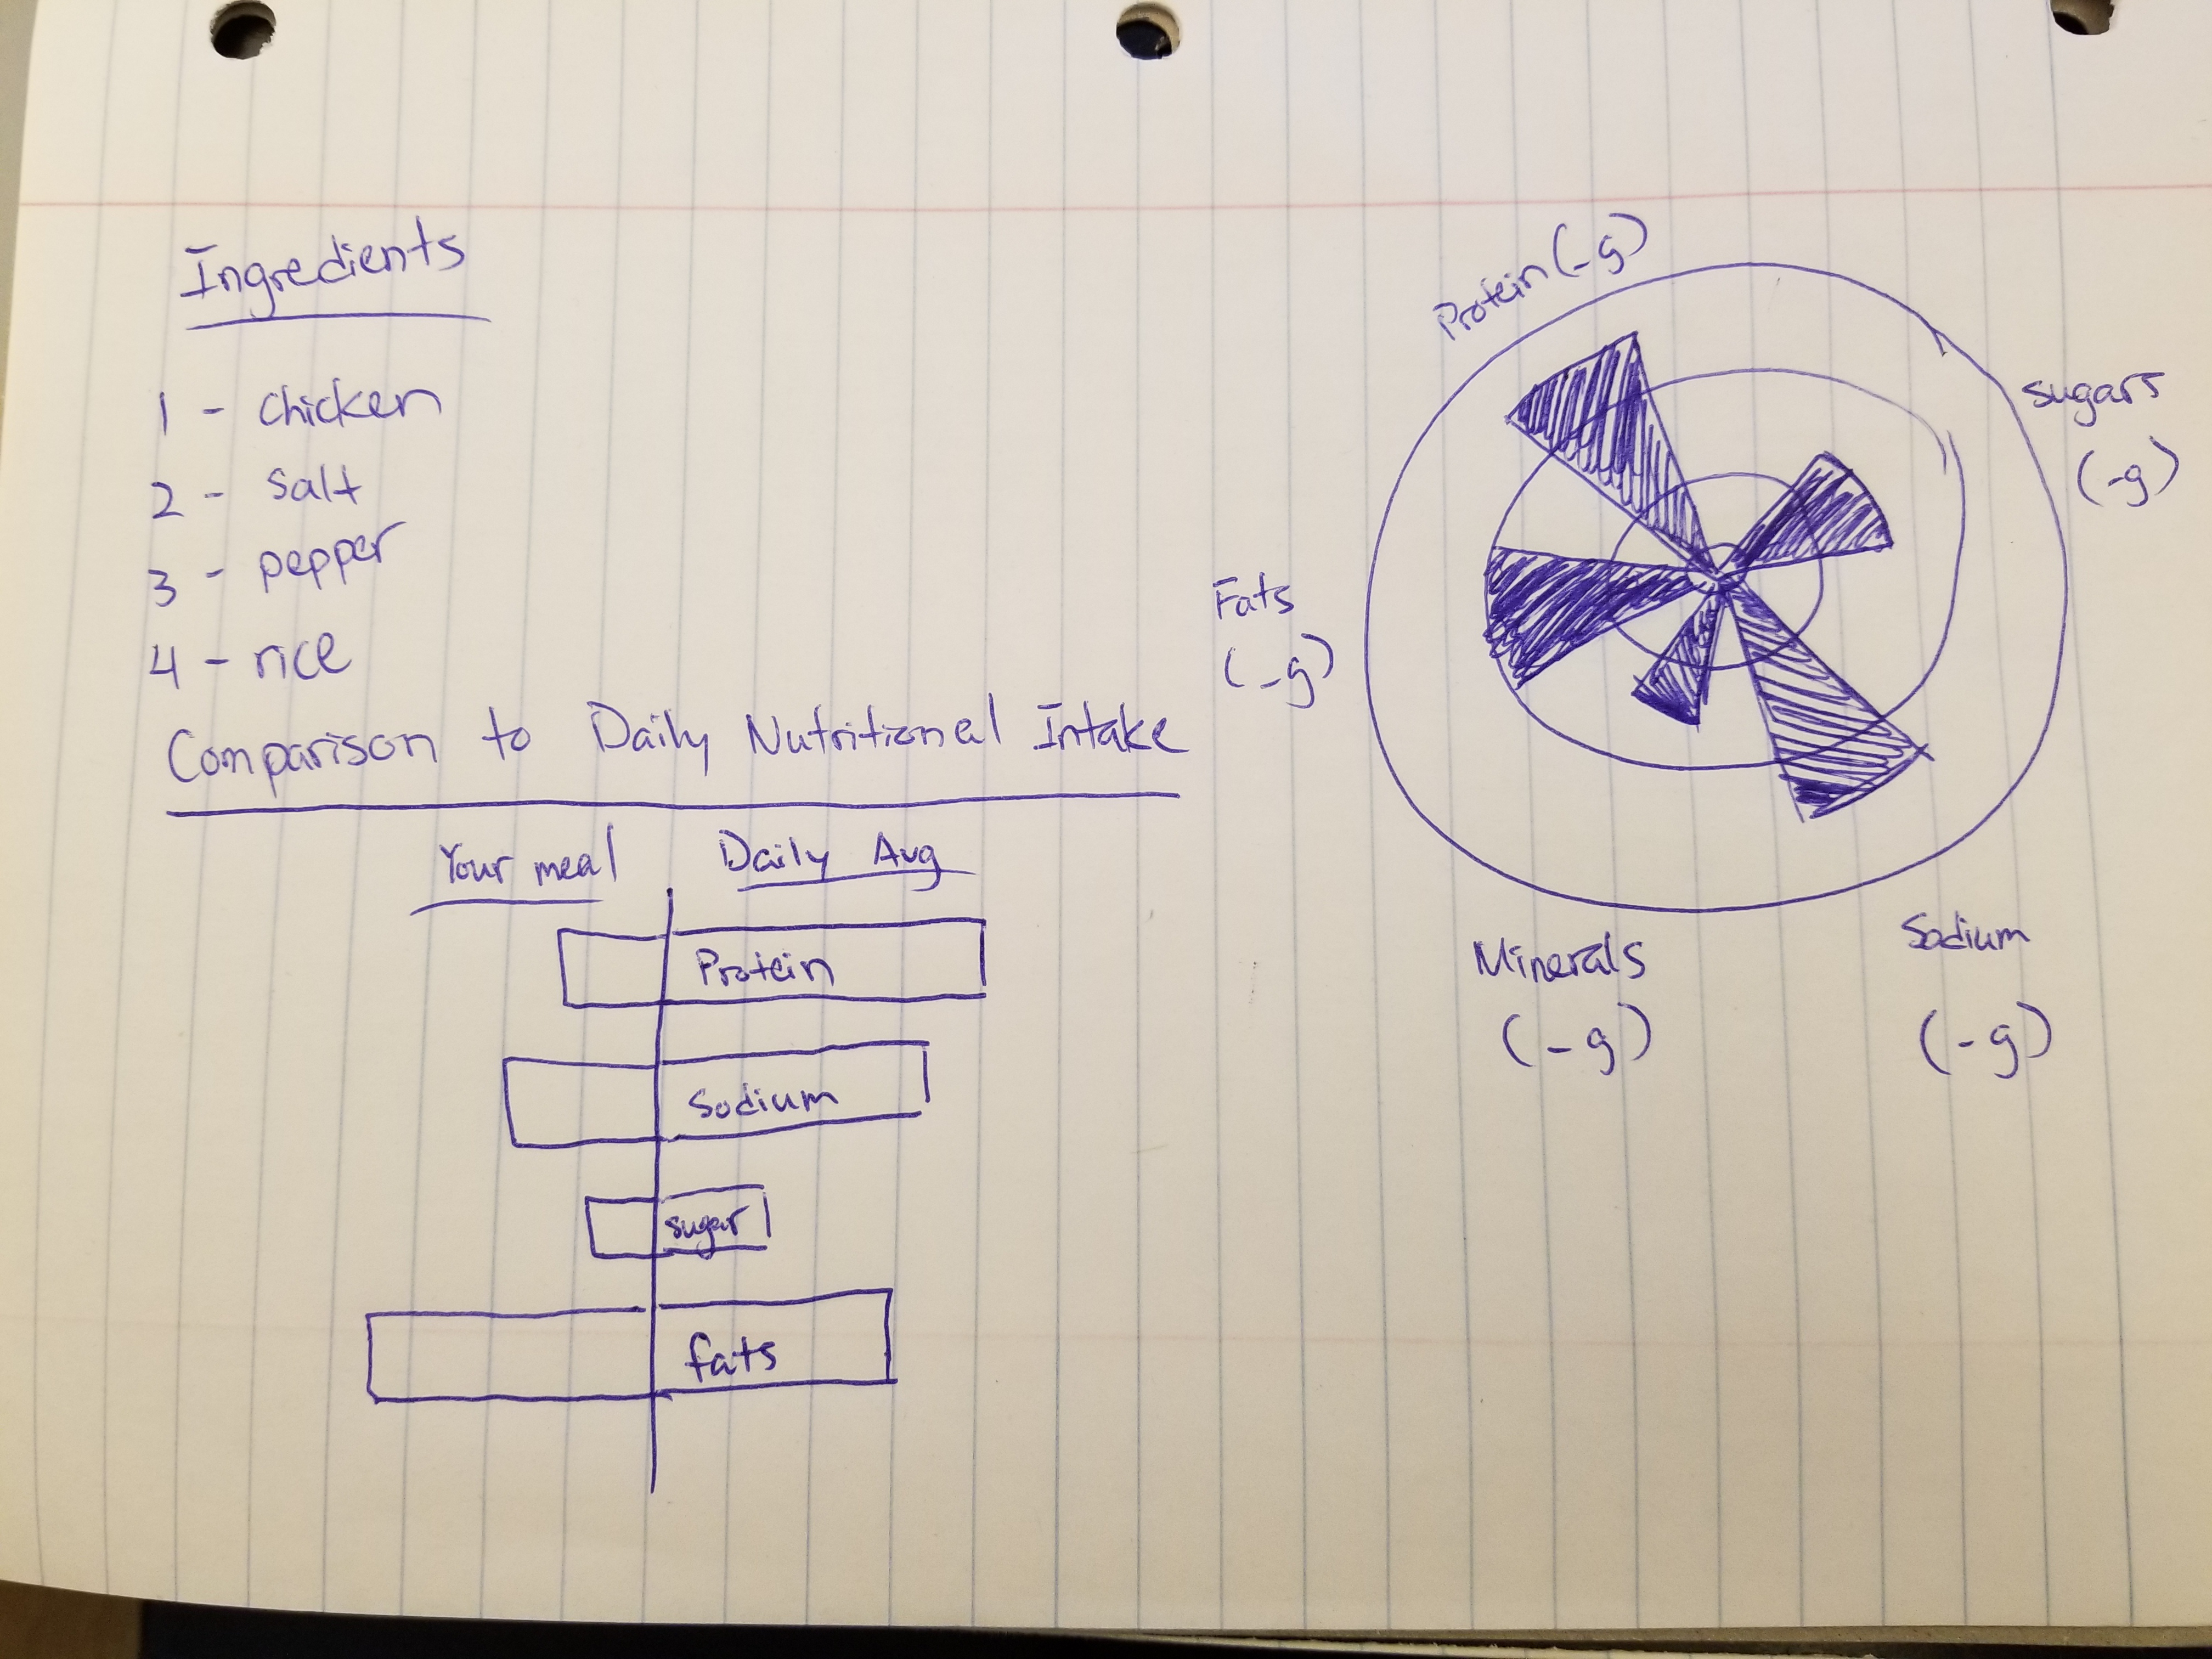 Ingredients
1 - chicken
2 - salt
3 - pepper
4 - rice
Comparison to Daily Nutritional Intake
Your meal Daily Avg
Protein
Sodium
sugar
fats
Protein (-g)
Fats
(-g)
sugars
(-g)
Minerals
(-g)
Sodium
(-g)